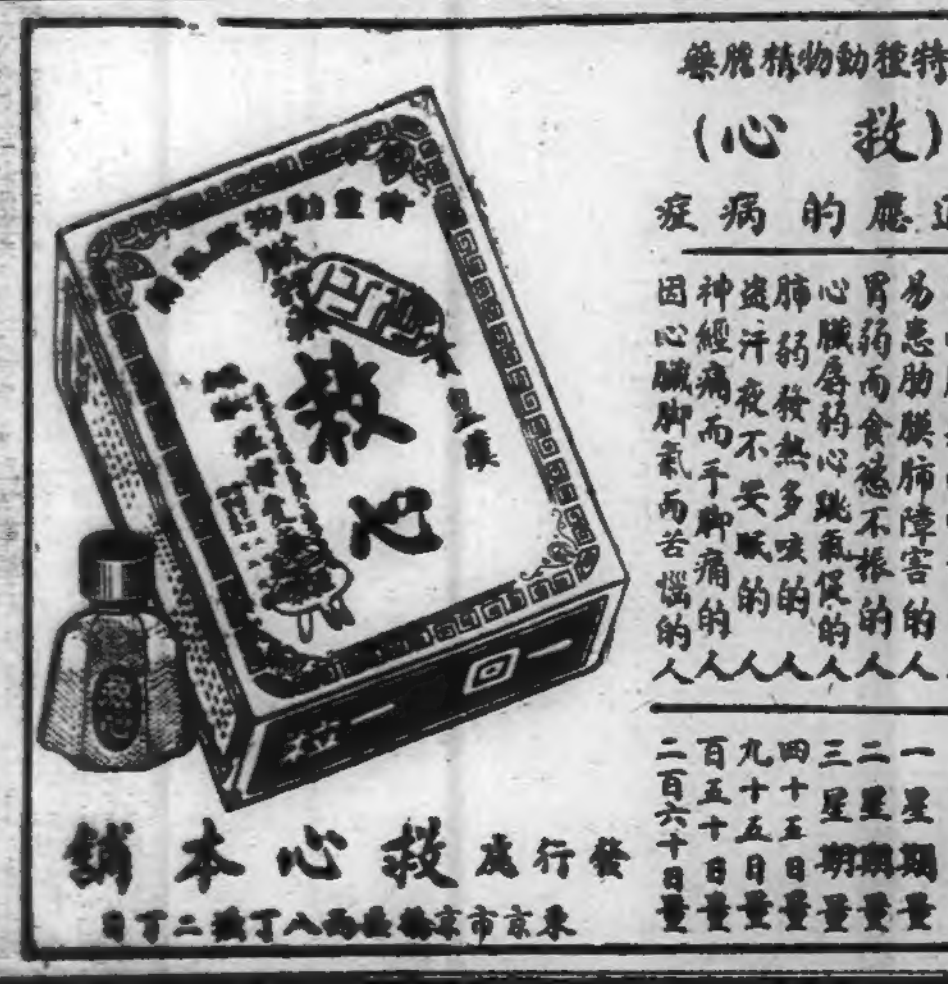 特種動物精膽藥
(救心)
應的病症
易患肋膜肺障害的人
胃弱而食慾不振的人
心臟孱弱心跳氣促的人
肺弱發熱多咳的人
盜汗夜不安眠的人
神經痛而手脚痛的人
因心臟脚氣而苦惱的人
一星期量
二星期量
三星期量
四十五日量
九十五日量
百五十日量
二百六十日量
救心
一回一粒
救心
發行處 救心本舖
東京市京橋區西八丁堀二丁目